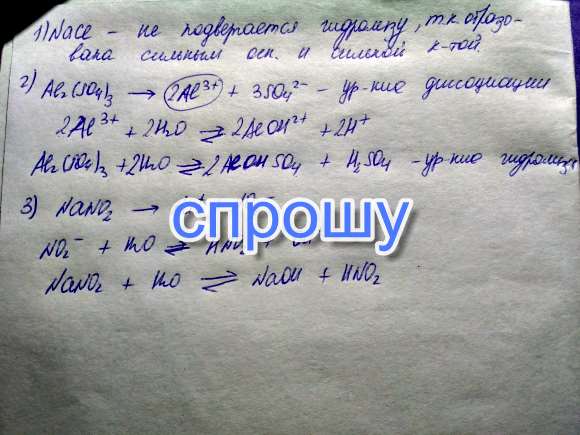 1) NaCl – не подвергается гидролизу, т.к. образо-
вана сильным осн. и сильной к-той.
2) Al₂(SO₄)₃ → 2Al³⁺ + 3SO₄²⁻ – ур-ние дисоциации
2Al³⁺ + 2H₂O ⇌ 2AlOH²⁺ + 2H⁺
Al₂(SO₄)₃ + 2H₂O ⇌ 2AlOHSO₄ + H₂SO₄ – ур-ние гидролиза
3) NaNO₂ →
спрошу
NO₂⁻ + H₂O ⇌
NaNO₂ + H₂O ⇌ NaOH + HNO₂